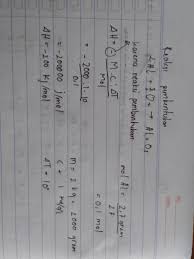 Reaksi pembentukan
2Al + 3O → Al₂O₃
karena reaksi pembentukan
ΔH = (-) m . c . ΔT
mol
= - 2000 . 1 . 10
0,1
= - 200000 J/mol
ΔH = -200 kJ/mol
mol Al = 2,7 gram
27
= 0,1 mol
m = 2 kg = 2000 gram
ΔT = 10°